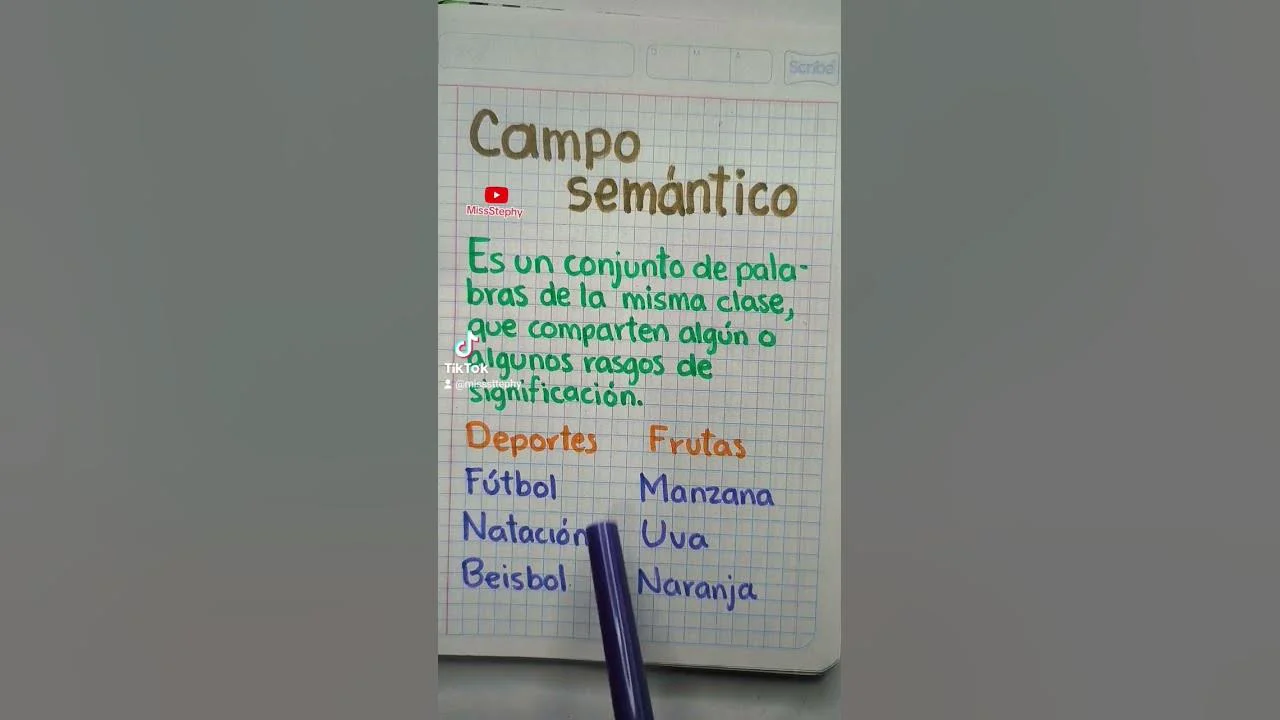 D M A
Scribe
Campo
semántico
MissStephy
Es un conjunto de pala-
bras de la misma clase,
que comparten algún o
algunos rasgos de
significación.
TikTok
@misssttephy
Deportes Frutas
Fútbol Manzana
Natación Uva
Beisbol Naranja